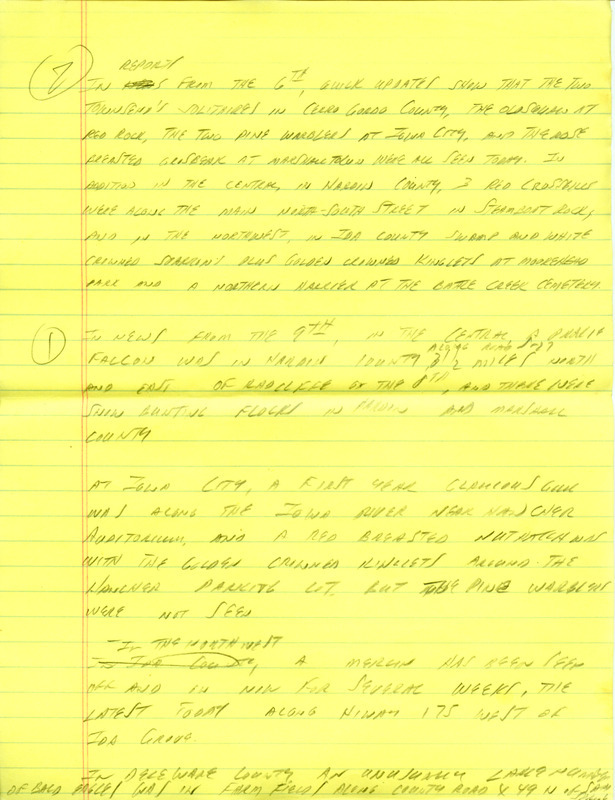 2
REPORTS
IN FROM THE 6TH, QUICK UPDATES SHOW THAT THE TWO
TOWNSEND'S SOLITAIRES IN CERRO GORDO COUNTY, THE OLDSQUAW AT
RED ROCK, THE TWO PINE WARBLERS AT IOWA CITY, AND THE ROSE
BREASTED GROSBEAK AT MARSHALLTOWN WERE ALL SEEN TODAY. IN
ADDITION IN THE CENTRAL, IN HARDIN COUNTY, 3 RED CROSSBILLS
WERE ALONG THE MAIN NORTH-SOUTH STREET IN STEAMBOAT ROCK,
AND IN THE NORTHWEST, IN IDA COUNTY SWAMP AND WHITE
CROWNED SPARROWS PLUS GOLDEN CROWNED KINGLETS AT MOOREHEAD
PARK AND A NORTHERN HARRIER AT THE BATTLE CREEK CEMETERY.
1
IN NEWS FROM THE 9TH, IN THE CENTRAL A PRAIRIE
ALONG ROAD
FALCON WAS IN HARDIN COUNTY MILES NORTH
AND EAST OF RADCLIFFE ON THE 8TH, AND THERE WERE
SNOW BUNTING FLOCKS IN HARDIN AND MARSHALL
COUNTY
AT IOWA CITY, A FIRST YEAR GLAUCOUS GULL
WAS ALONG THE IOWA RIVER NEAR HANCHER
AUDITORIUM, AND A RED BREASTED NUTHATCH WAS
WITH THE GOLDEN CROWNED KINGLETS AROUND THE
HANCHER PARKING LOT, BUT THE PINE WARBLERS
WERE NOT SEEN
- IN THE NORTHWEST
IN IDA COUNTY, A MERLIN HAS BEEN SEEN
OFF AND ON NOW FOR SEVERAL WEEKS, THE
LATEST TODAY ALONG HIWAY 175 WEST OF
IDA GROVE.
IN DELEWARE COUNTY AN UNUSUALLY LARGE NUMBER
OF BALD EAGLES WAS IN FARM FIELDS ALONG COUNTY ROAD X 49 N OF